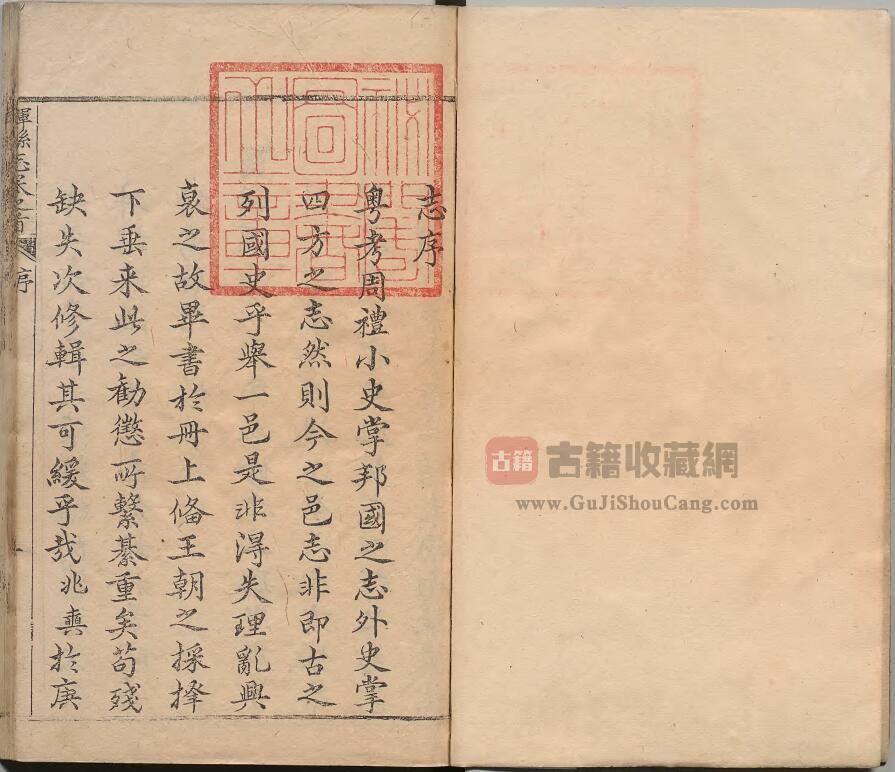 志序
粵考周禮小史掌邦國之志外史掌
四方之志然則今之邑志非即古之
列國史乎舉一邑是非淂失理亂興
衰之故畢書於冊上備王朝之採擇
下垂来此之勸懲所繫綦重矣苟殘
缺失次修輯其可緩乎哉兆真於庚
輝縣志卷之首
序
古籍
古籍收藏網
www.GuJiShouCang.com